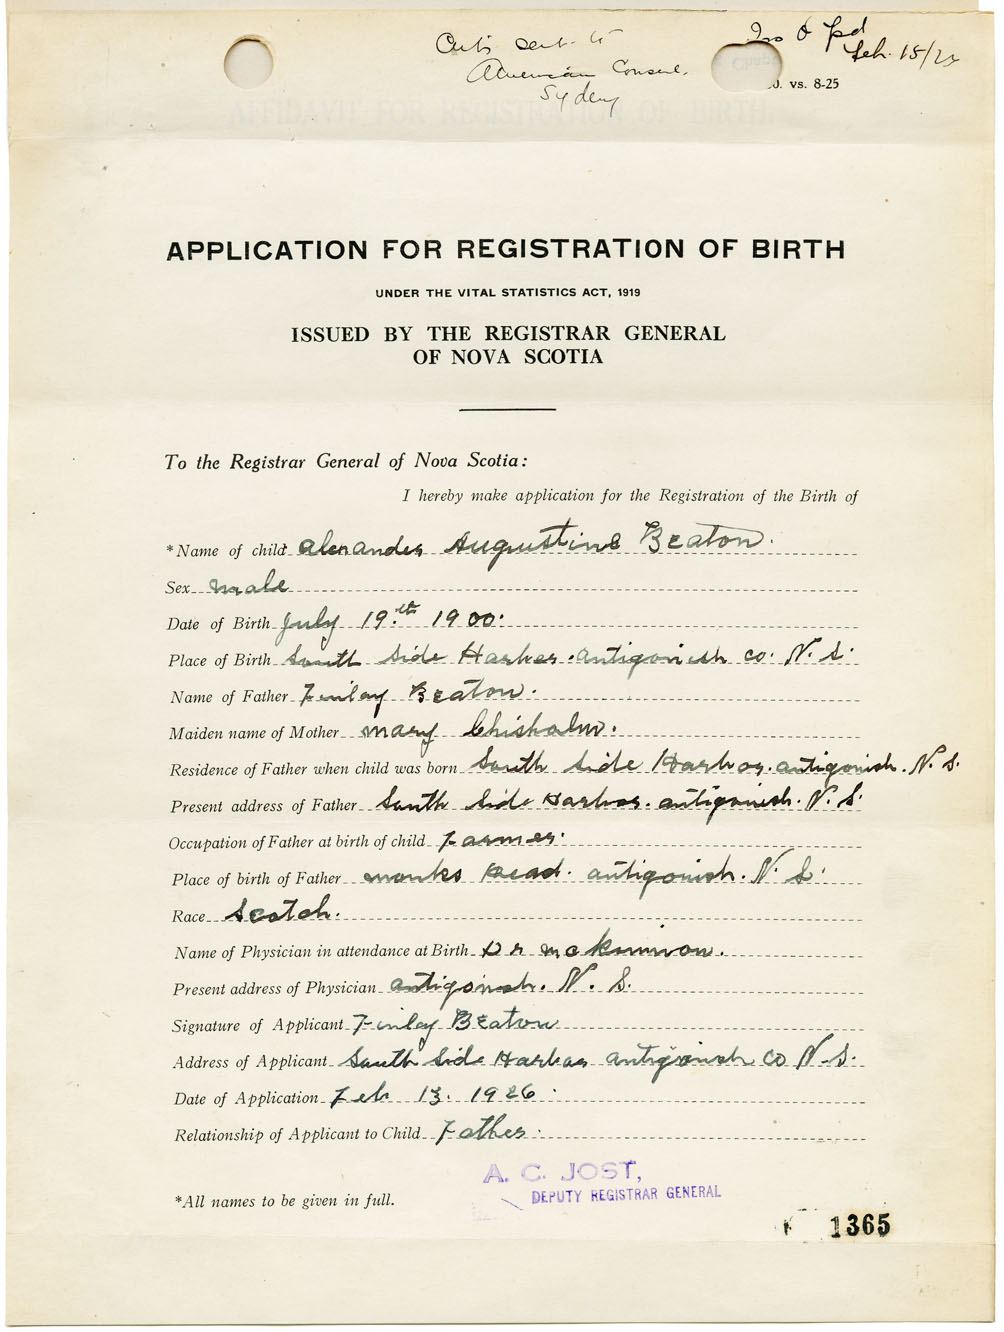 Cert. sent to
American Consul,
Sydney
Iss & pd
Feb. 15/26
vs. 8-25
AFFIDAVIT FOR REGISTRATION OF BIRTH
APPLICATION FOR REGISTRATION OF BIRTH
UNDER THE VITAL STATISTICS ACT, 1919
ISSUED BY THE REGISTRAR GENERAL
OF NOVA SCOTIA
To the Registrar General of Nova Scotia:
I hereby make application for the Registration of the Birth of
*Name of child Alexander Augustine Beaton.
Sex male
Date of Birth July 19.th 1900.
Place of Birth South Side Harbor. Antigonish Co. N. S.
Name of Father Finlay Beaton.
Maiden name of Mother Mary Chisholm.
Residence of Father when child was born South Side Harbor. Antigonish. N. S.
Present address of Father South Side Harbor. Antigonish. N. S.
Occupation of Father at birth of child Farmer.
Place of birth of Father Monks Head. Antigonish. N. S.
Race Scotch.
Name of Physician in attendance at Birth Dr McKinnon.
Present address of Physician Antigonish. N. S.
Signature of Applicant Finlay Beaton
Address of Applicant South Side Harbor Antigonish Co N. S.
Date of Application Feb 13. 1926.
Relationship of Applicant to Child Father.
A. C. JOST,
DEPUTY REGISTRAR GENERAL
*All names to be given in full.
1365